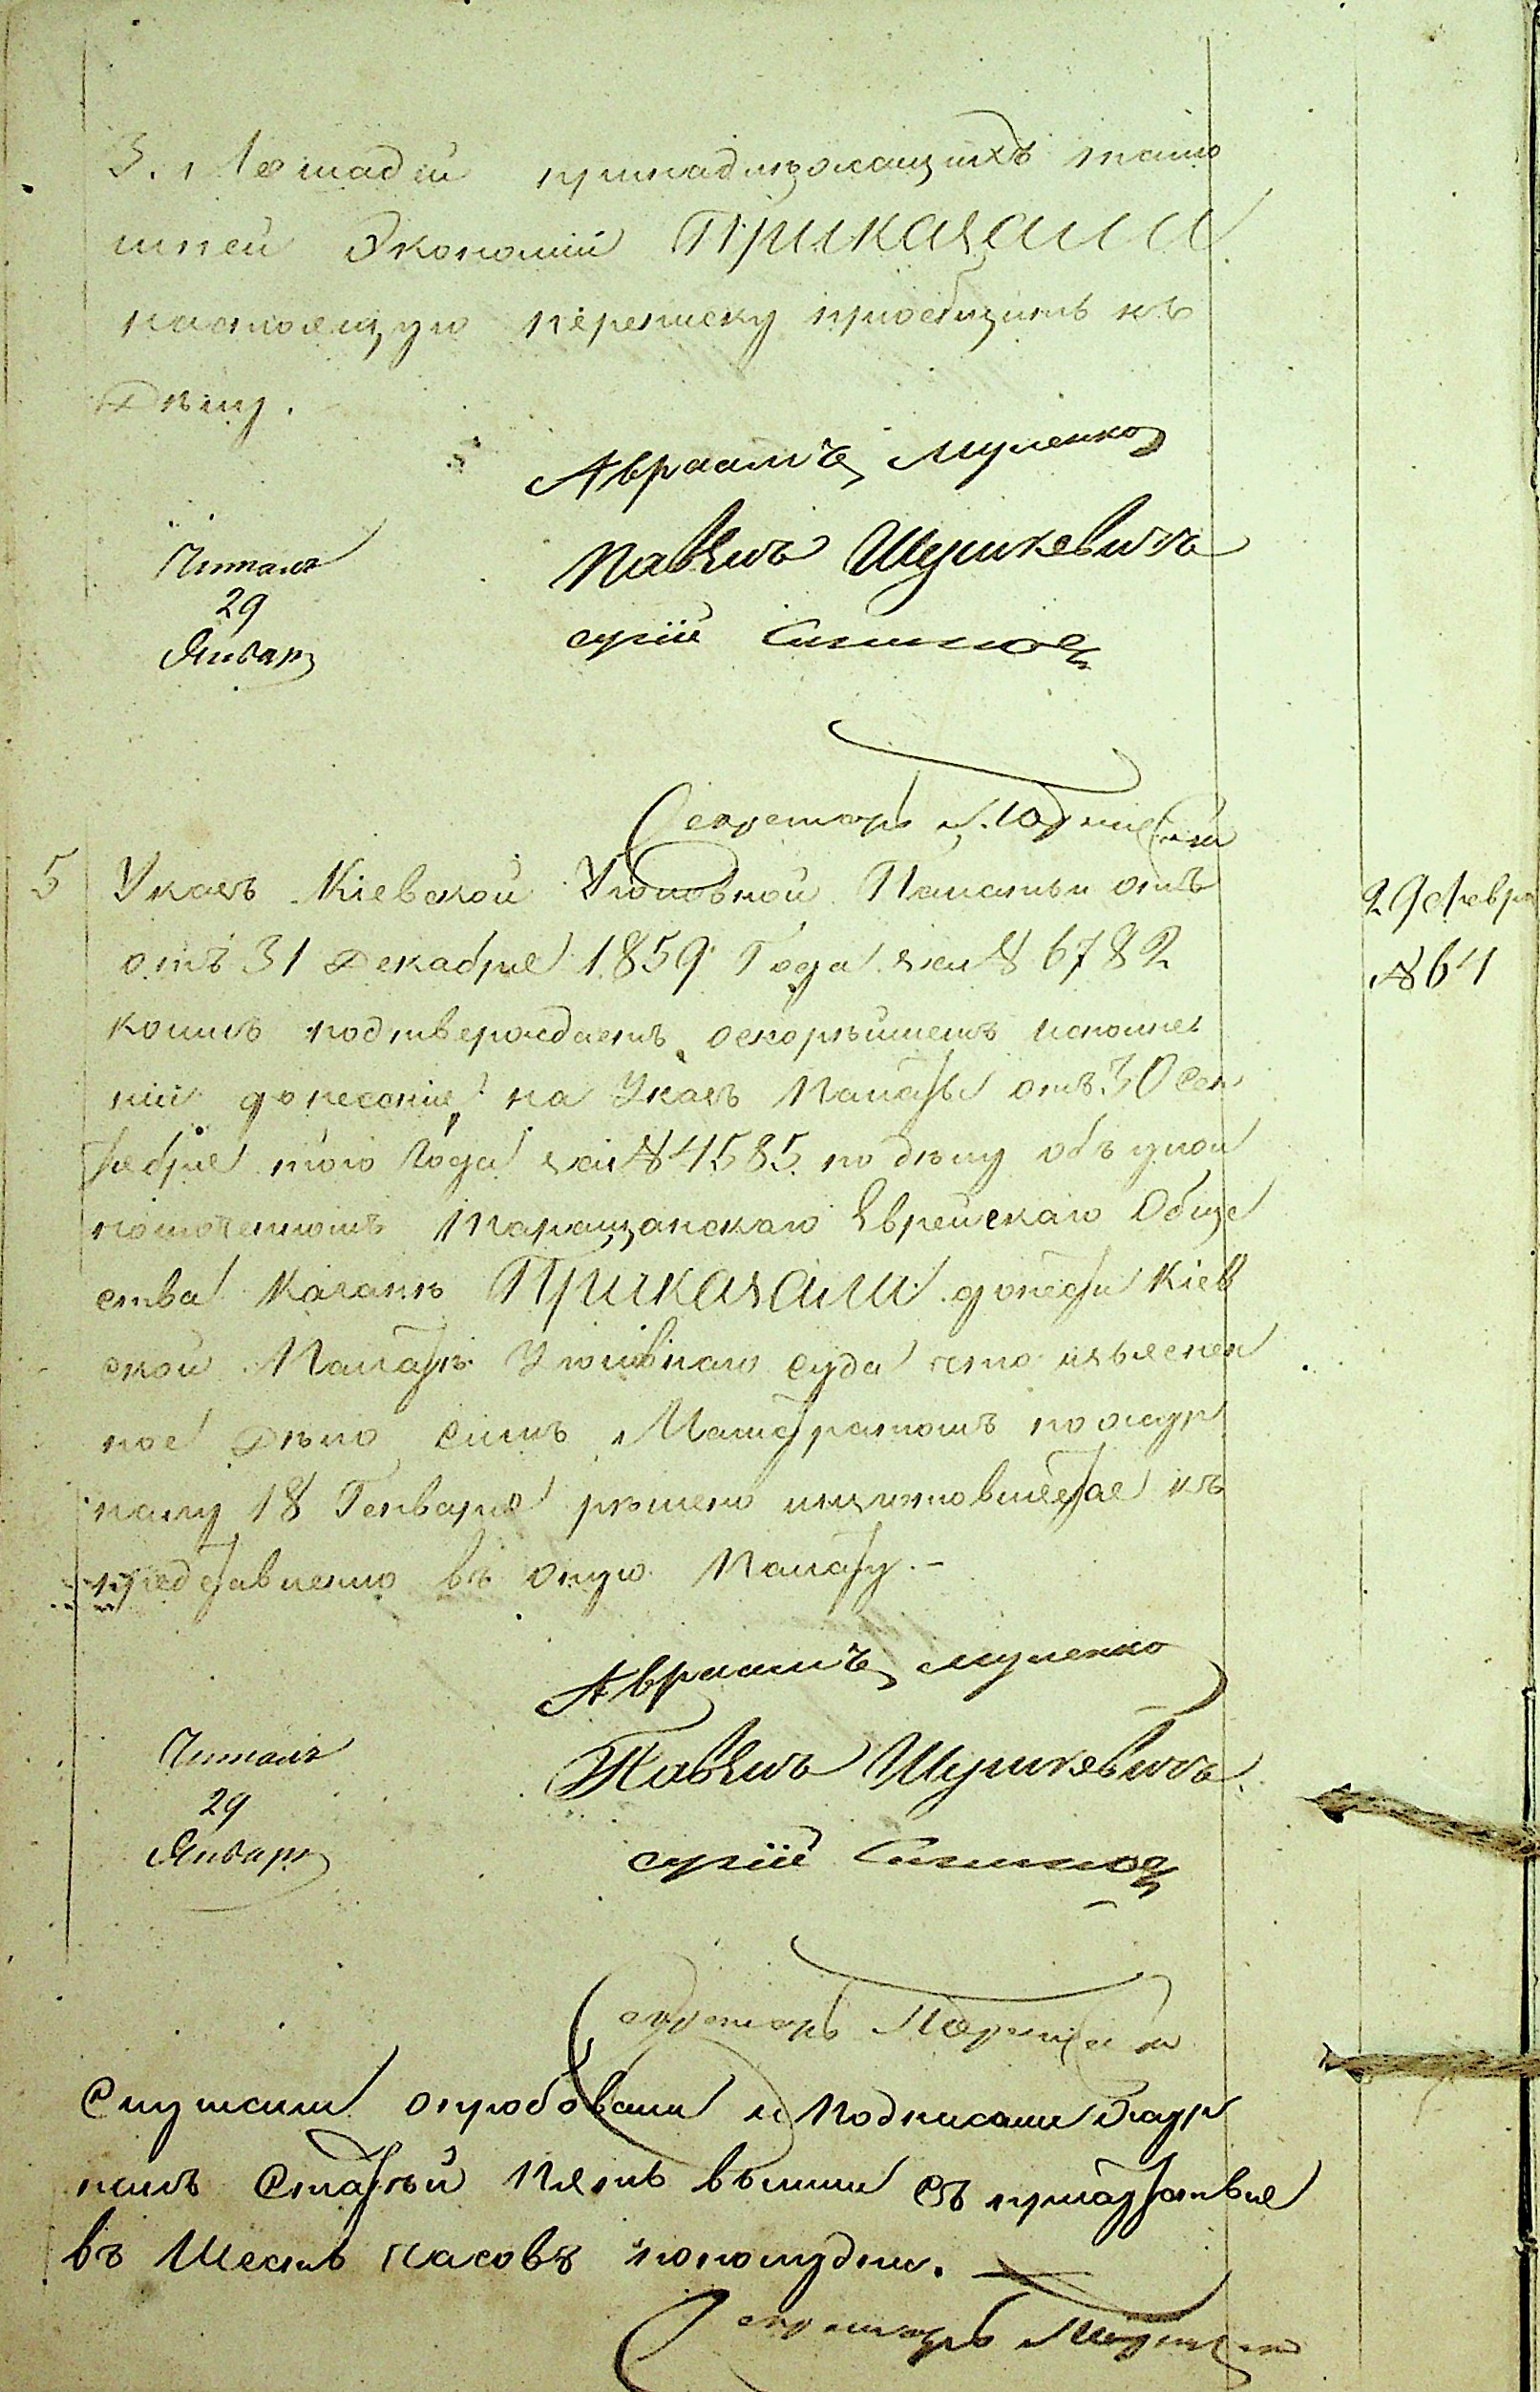 3. Лошадей принадлѣжащихъ тамо
шней Экономіи Приказали
настоящую переписку пріобщить къ
Дѣлу.
Авраамъ Муленко
Павелъ Шушкевичъ
Читалъ
29
Январ
Секретарь
5 Указъ Кіевской Уголовной Палаты отъ
отъ 31 Декабря 1859 Года за № 6782
29 Февра
№ 64
коимъ подтверждаетъ оскорѣйшемъ исполне
ніи донесеніе, на Указъ Палаты отъ 30 Сен
тября того Года за № 4585 по дѣлу объ упол
номоченномъ Таращанскаго Еврейскаго Обще
ства Каганѣ Приказали донести Кіев
ской Палатѣ Уголовнаго суда что изъяснен
ное Дѣло симъ Магистратомъ по жур
налу 18 Генваря рѣшено къ
представленію въ оную Палату. -
Авраамъ Муленко
Павелъ Шушкевичъ
Читалъ
29
Январ
Секретарь
Слушали опробовали и Подписали Жур
налъ Статьи Пять вышли съ присутствія
въ Шесть часовъ пополудни.
Секретарь